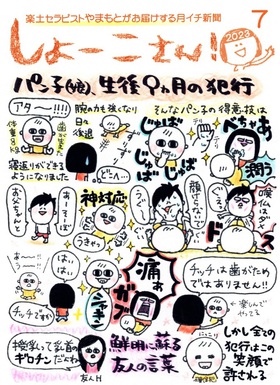 楽土セラピストやまもとがお届けする月イチ新聞
しょーこさん!
2023
7
パン子(娘)、生後9ヵ月の犯行
アター!!!!
腕の力も強くなり
日々後退
そんなパン子の得意技は
じゅば
じゅば
じゅば
べちゃあ
潤う
寝返りができる
ようになりました
神対応
あーそーぼ
うきゃっ
はい
はい
ニヤッキ
痛
ガブ
チッチは歯がため
ではありません!!
チッチですか
授乳って乳首の
ギロチンだわね
友人H
鮮明に蘇る
友人の言葉
しかし全ての
犯行はこの
笑顔で
許される